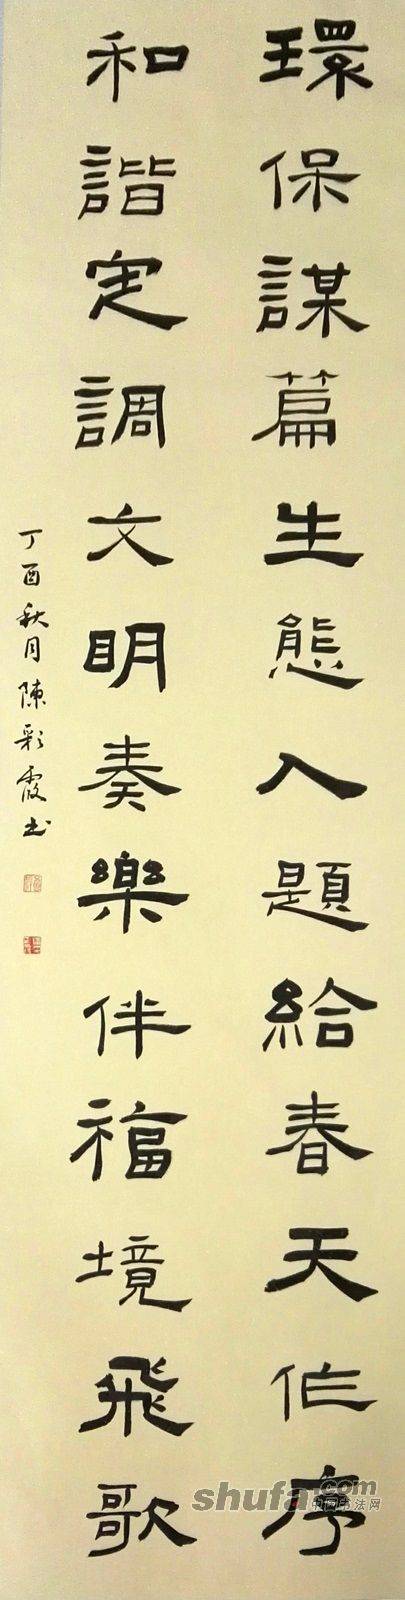 環保謀篇生態入題給春天作序
和諧定調文明奏樂伴福境飛歌
丁酉秋月陳彩霞书
shufa.com
中国书法网